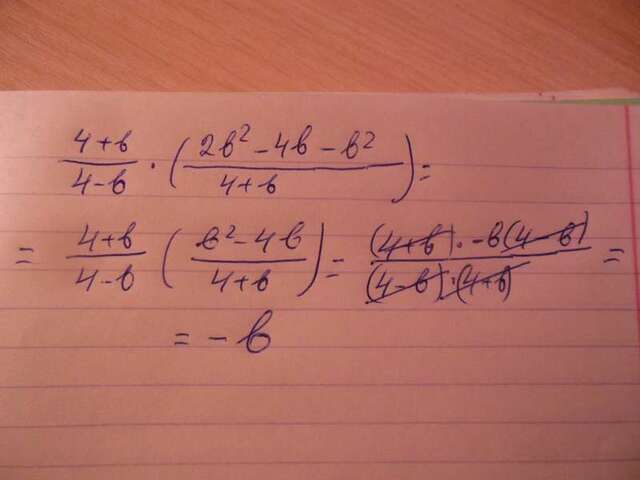 (4+b)/(4-b) · ((2b² - 4b - b²)/(4+b)) =
= (4+b)/(4-b) ((b² - 4b)/(4+b)) = ((4+b) · -b(4-b))/((4-b)·(4+b)) =
= -b